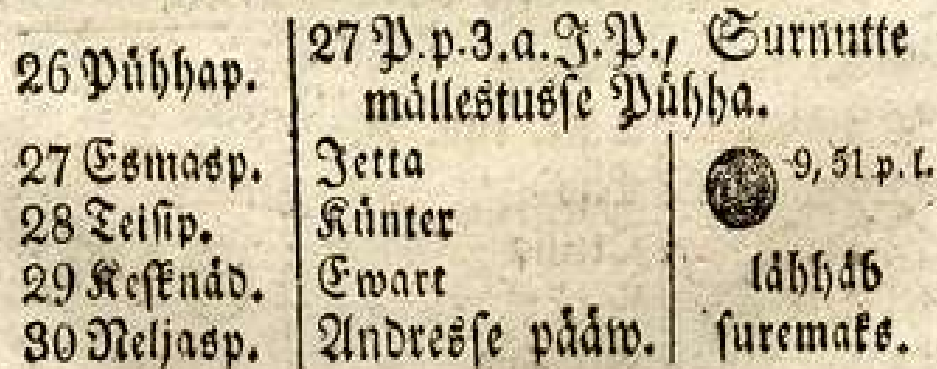 26 Pühhap. 27 P. p. 3. a. J. P., Surnutte
mällestusse Pühha.
27 Esmasp. Jetta 9, 51 p. l.
28 Teisip. Künter
29 Kesknäd. Ewart lähhäb
30 Neljasp. Andresse pääw. suremaks.